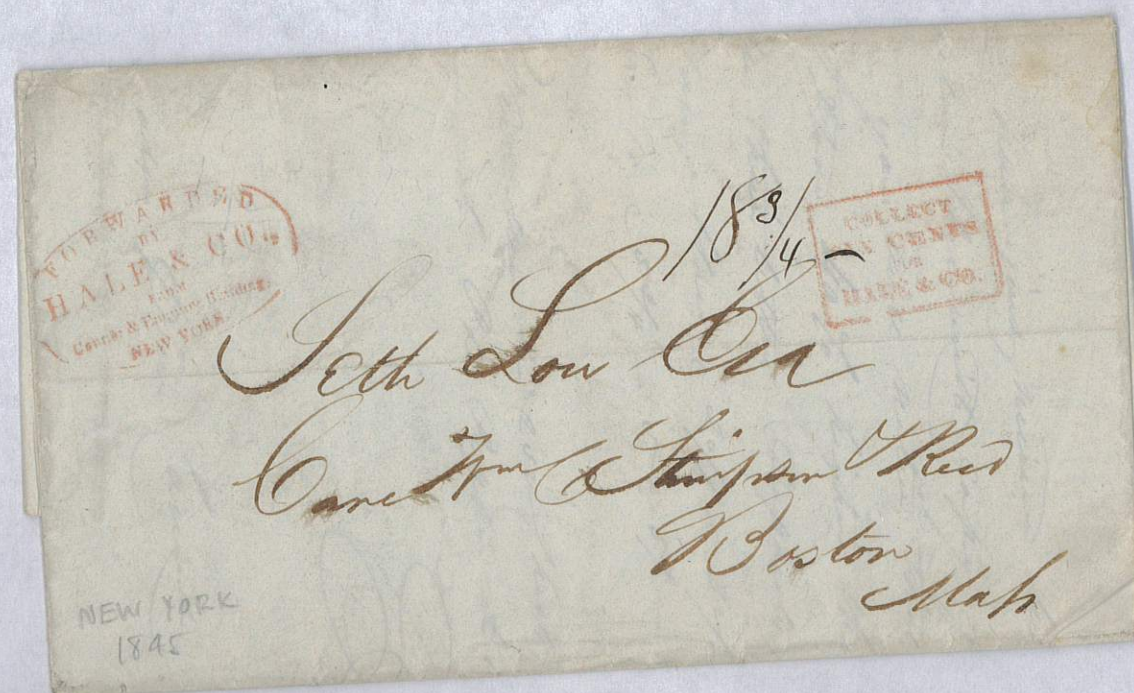 FORWARDED
BY
HALE & CO.
FROM
& Building,
NEW YORK
18 3/4 –
COLLECT
SIX CENTS
FOR
HALE & CO.
Seth Low Esq
Care Wm Stimpson & Reed
Boston
Mass
NEW YORK
1845